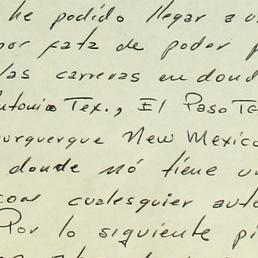 he podido llegar a u
por fata de poder p
las carreras en dond
ntonio Tex., El Paso Te
urquerque New Mexico
donde nó tiene u
con cualesquier auto
Por lo siguiente pi